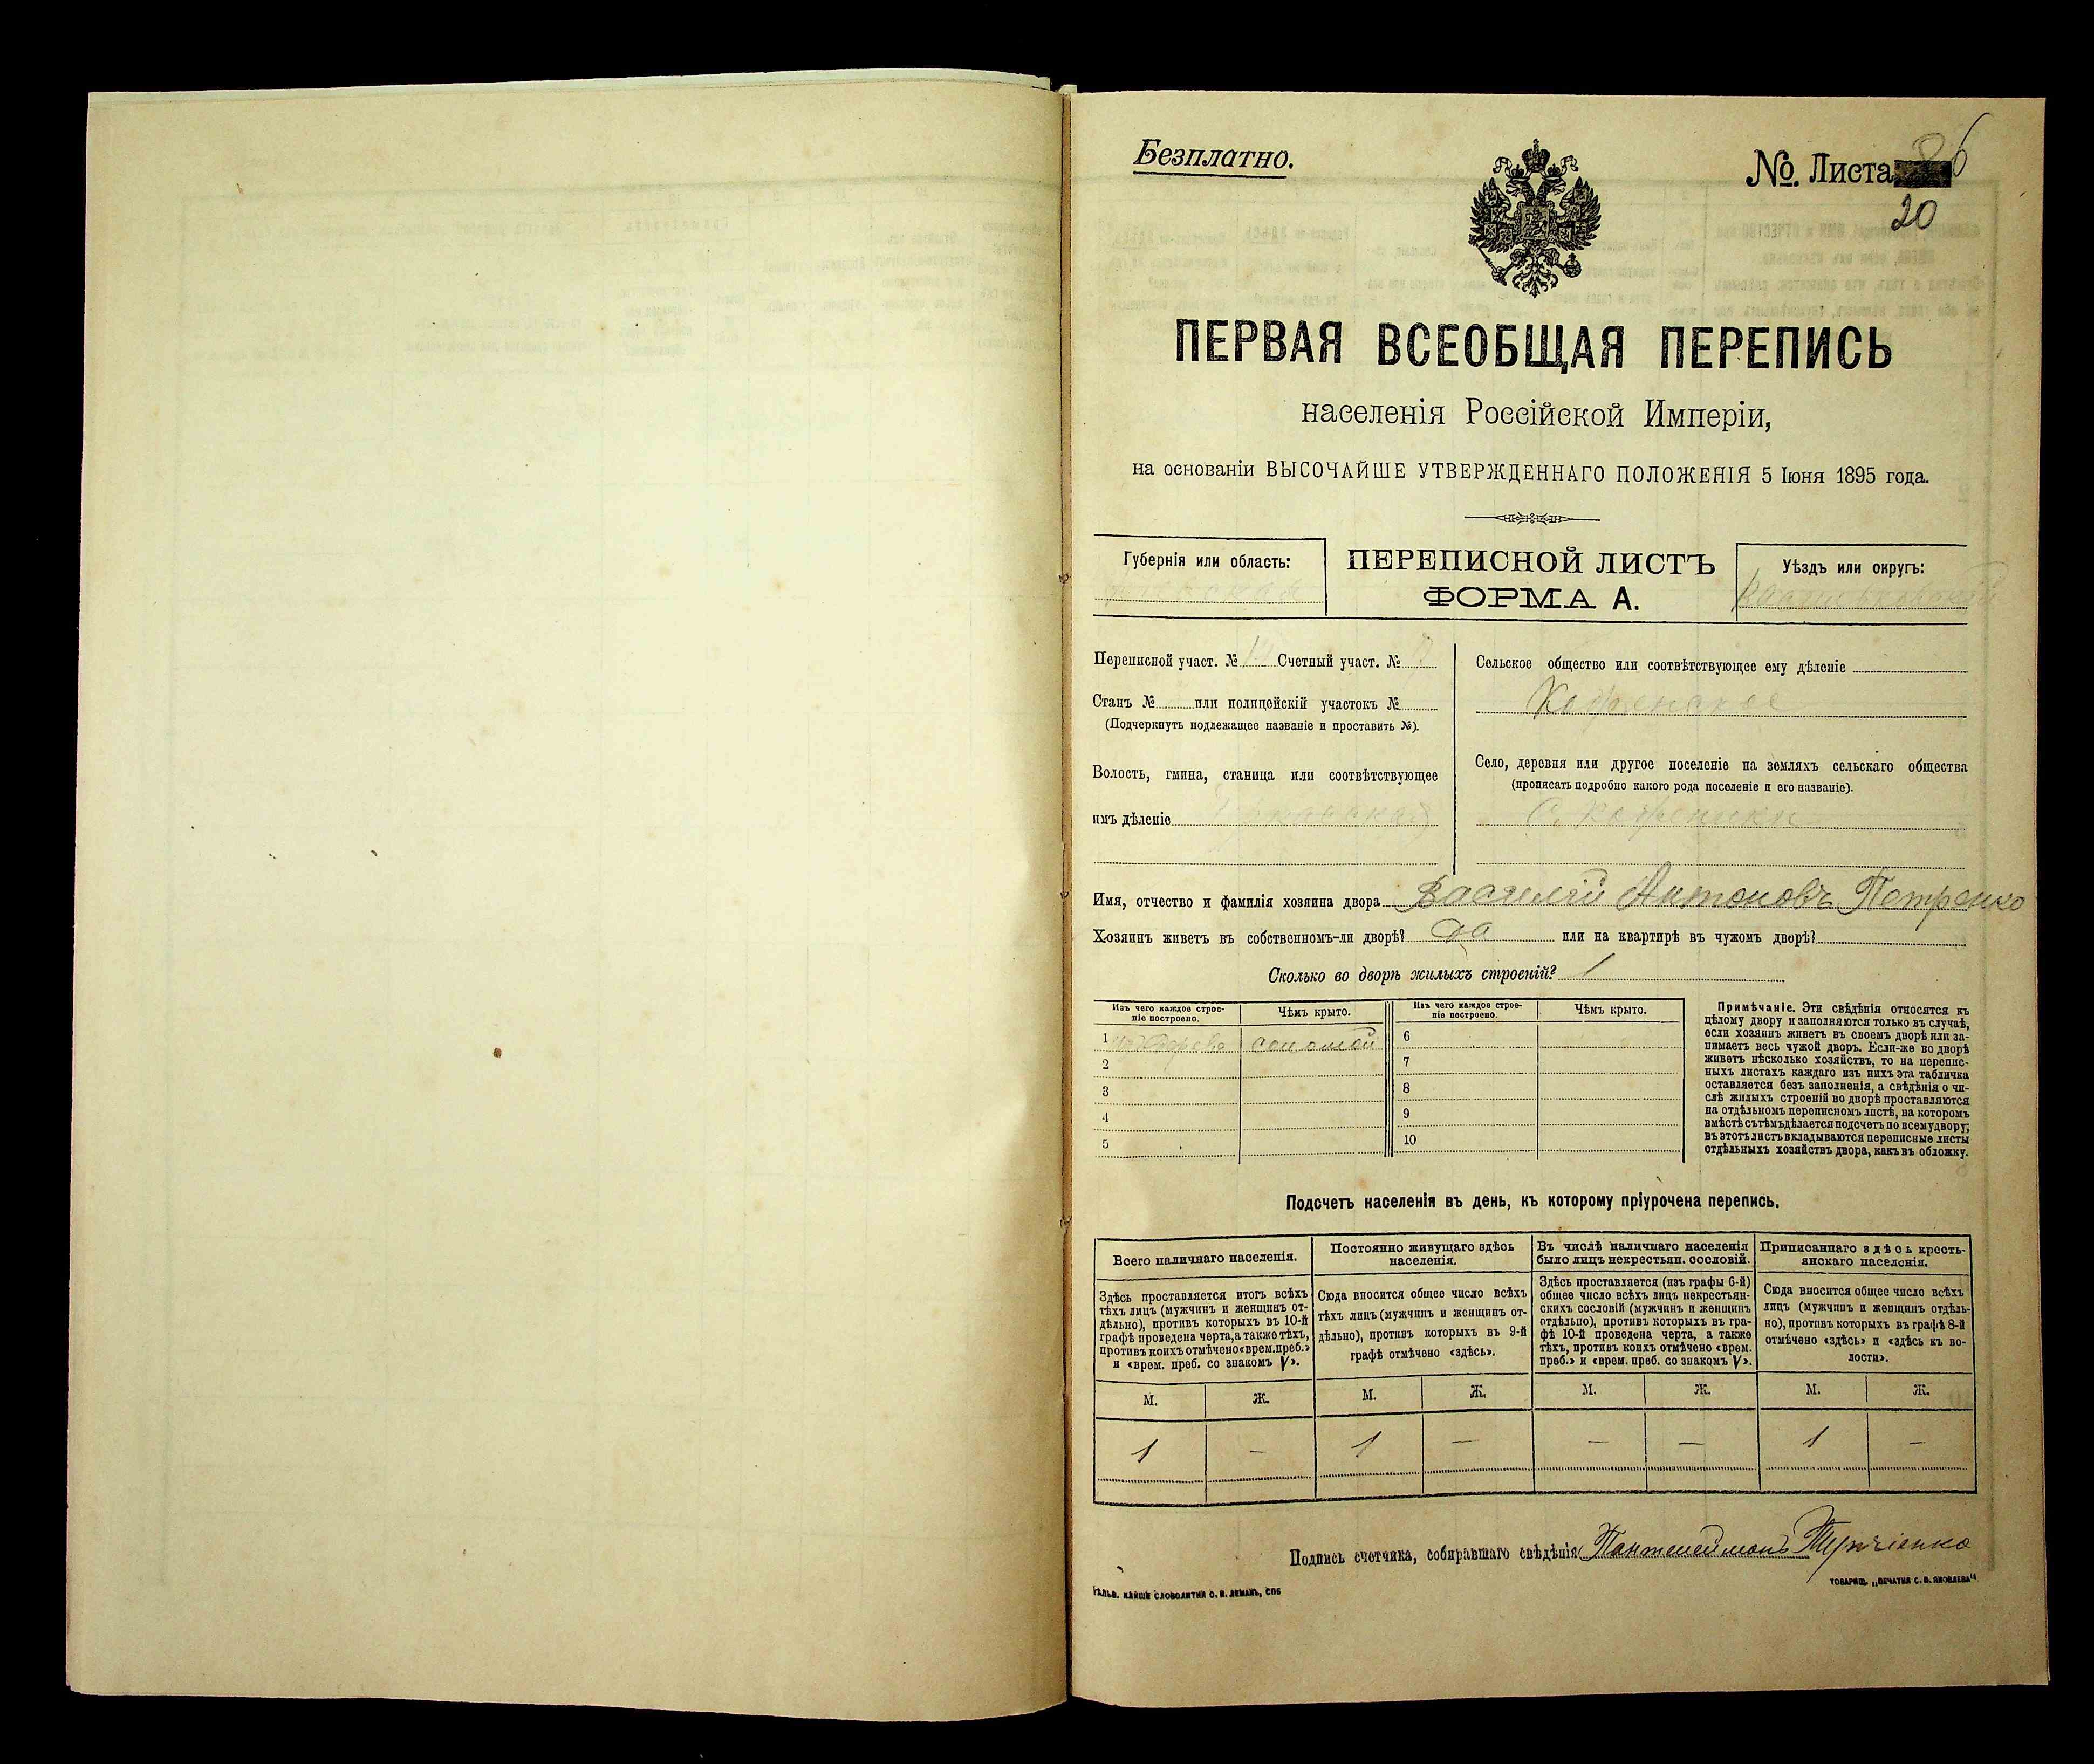 Безплатно.
№. Листа 86
20
ПЕРВАЯ ВСЕОБЩАЯ ПЕРЕПИСЬ
населенія Россійской Имперіи,
на основаніи ВЫСОЧАЙШЕ УТВЕРЖДЕННАГО ПОЛОЖЕНІЯ 5 Іюня 1895 года.
Губернія или область:
ПЕРЕПИСНОЙ ЛИСТЪ
ФОРМА А.
Уѣздъ или округъ:
Переписной участ. № Счетный участ. №
Станъ № или полицейскій участокъ №
(Подчеркнуть подлежащее названіе и проставить №).
Волость, гмина, станица или соотвѣтствующее
имъ дѣленіе
Сельское общество или соотвѣтствующее ему дѣленіе
Село, деревня или другое поселеніе на земляхъ сельскаго общества
(прописать подробно какого рода поселеніе и его названіе).
Имя, отчество и фамилія хозяина двора Василій Антоновъ Петренко
Хозяинъ живетъ въ собственномъ-ли дворѣ? да или на квартирѣ въ чужомъ дворѣ?
Сколько во дворѣ жилыхъ строеній? 1
Изъ чего каждое строе-
ніе построено.
Чѣмъ крыто.
Изъ чего каждое строе-
ніе построено.
Чѣмъ крыто.
1 соломой 6
2 7
3 8
4 9
5 10
Примѣчаніе. Эти свѣдѣнія относятся къ
цѣлому двору и заполняются только въ случаѣ,
если хозяинъ живетъ въ своемъ дворѣ или за-
нимаетъ весь чужой дворъ. Если-же во дворѣ
живетъ нѣсколько хозяйствъ, то на перепис-
ныхъ листахъ каждаго изъ нихъ эта табличка
оставляется безъ заполненія, а свѣдѣнія о чи-
слѣ жилыхъ строеній во дворѣ проставляются
на отдѣльномъ переписномъ листѣ, на которомъ
вмѣстѣ съ тѣмъ дѣлается подсчетъ по всему двору;
въ этотъ листъ вкладываются переписные листы
отдѣльныхъ хозяйствъ двора, какъ въ обложку.
Подсчетъ населенія въ день, къ которому пріурочена перепись.
Всего наличнаго населенія.
Здѣсь проставляется итогъ всѣхъ
тѣхъ лицъ (мужчинъ и женщинъ от-
дѣльно), противъ которыхъ въ 10-й
графѣ проведена черта, а также тѣхъ,
противъ коихъ отмѣчено «врем. преб.»
и «врем. преб. со знакомъ V».
Постоянно живущаго здѣсь
населенія.
Сюда вносится общее число всѣхъ
тѣхъ лицъ (мужчинъ и женщинъ от-
дѣльно), противъ которыхъ въ 9-й
графѣ отмѣчено «здѣсь».
Въ числѣ наличнаго населенія
было лицъ некрестьян. сословій.
Здѣсь проставляется (изъ графы 6-й)
общее число всѣхъ лицъ некрестьян-
скихъ сословій (мужчинъ и женщинъ
отдѣльно), противъ которыхъ въ гра-
фѣ 10-й проведена черта, а также
тѣхъ, противъ коихъ отмѣчено «врем.
преб.» и «врем. преб. со знакомъ V».
Приписаннаго здѣсь кресть-
янскаго населенія.
Сюда вносится общее число всѣхъ
лицъ (мужчинъ и женщинъ отдѣль-
но), противъ которыхъ въ графѣ 8-й
отмѣчено «здѣсь» и «здѣсь къ во-
лости».
М. Ж. М. Ж. М. Ж. М. Ж.
1 — 1 — — — 1 —
Подпись счетчика, собиравшаго свѣдѣнія Пантелеймонъ
ТОВАРИЩ. „ПЕЧАТНЯ С. П. ЯКОВЛЕВА“